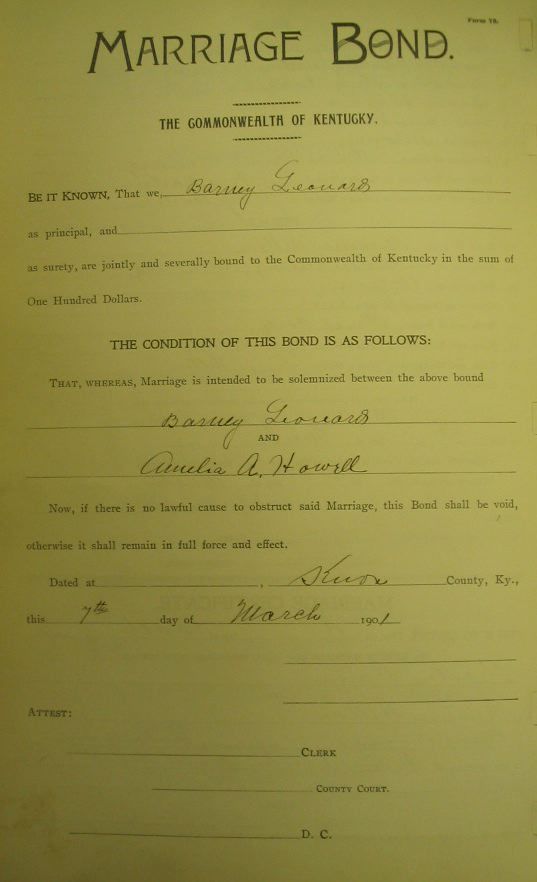 Form 78.
MARRIAGE BOND.
THE COMMONWEALTH OF KENTUCKY.
BE IT KNOWN, That we, Barney Leonard
as principal, and
as surety, are jointly and severally bound to the Commonwealth of Kentucky in the sum of
One Hundred Dollars.
THE CONDITION OF THIS BOND IS AS FOLLOWS:
THAT, WHEREAS, Marriage is intended to be solemnized between the above bound
Barney Leonard
AND
Amelia A. Howell
Now, if there is no lawful cause to obstruct said Marriage, this Bond shall be void,
otherwise it shall remain in full force and effect.
Dated at , Knox County, Ky.,
this 7th day of March 1901
ATTEST:
CLERK
COUNTY COURT.
D. C.